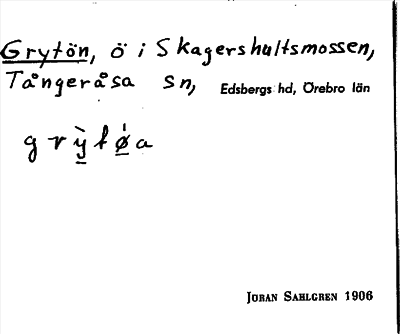 Grytön, ö i Skagershultsmossen,
Tångeråsa sn, Edsbergs hd, Örebro län
grỳtǿa
JÖRAN SAHLGREN 1906